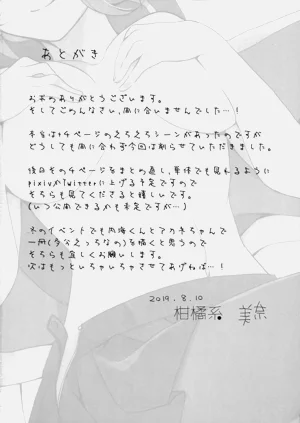 あとがき
お手のありがとうございます。
そしてごめんなさい、間に合いませんでした…!
本当は+チページのえちえちシーンがあったのですが
どうしても間に合わず今回は削らせていただきました。
後日そのチページをまとめ直し、単体でも見れるように
pixivかTwitterに上げる予定ですので
そちらも見てくださると嬉しいです。
(いつ公開できるかも未定ですが…)
次のイベントでも内海くんとアカネちゃんで
一冊(多分えっちなの)を描くと思うので
そちらも宜しくお願いします。
次はもっといちゃいちゃさせてあげれば…!
2019.8.10
柑橘系。 美奈